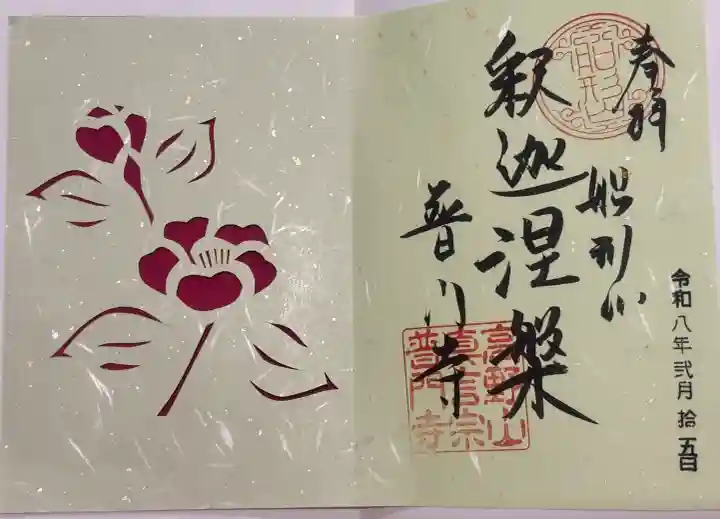 奉拝
船形山
釈迦涅槃
普門寺
令和八年弐月拾五日
船形山
高野山
真言宗
普門寺